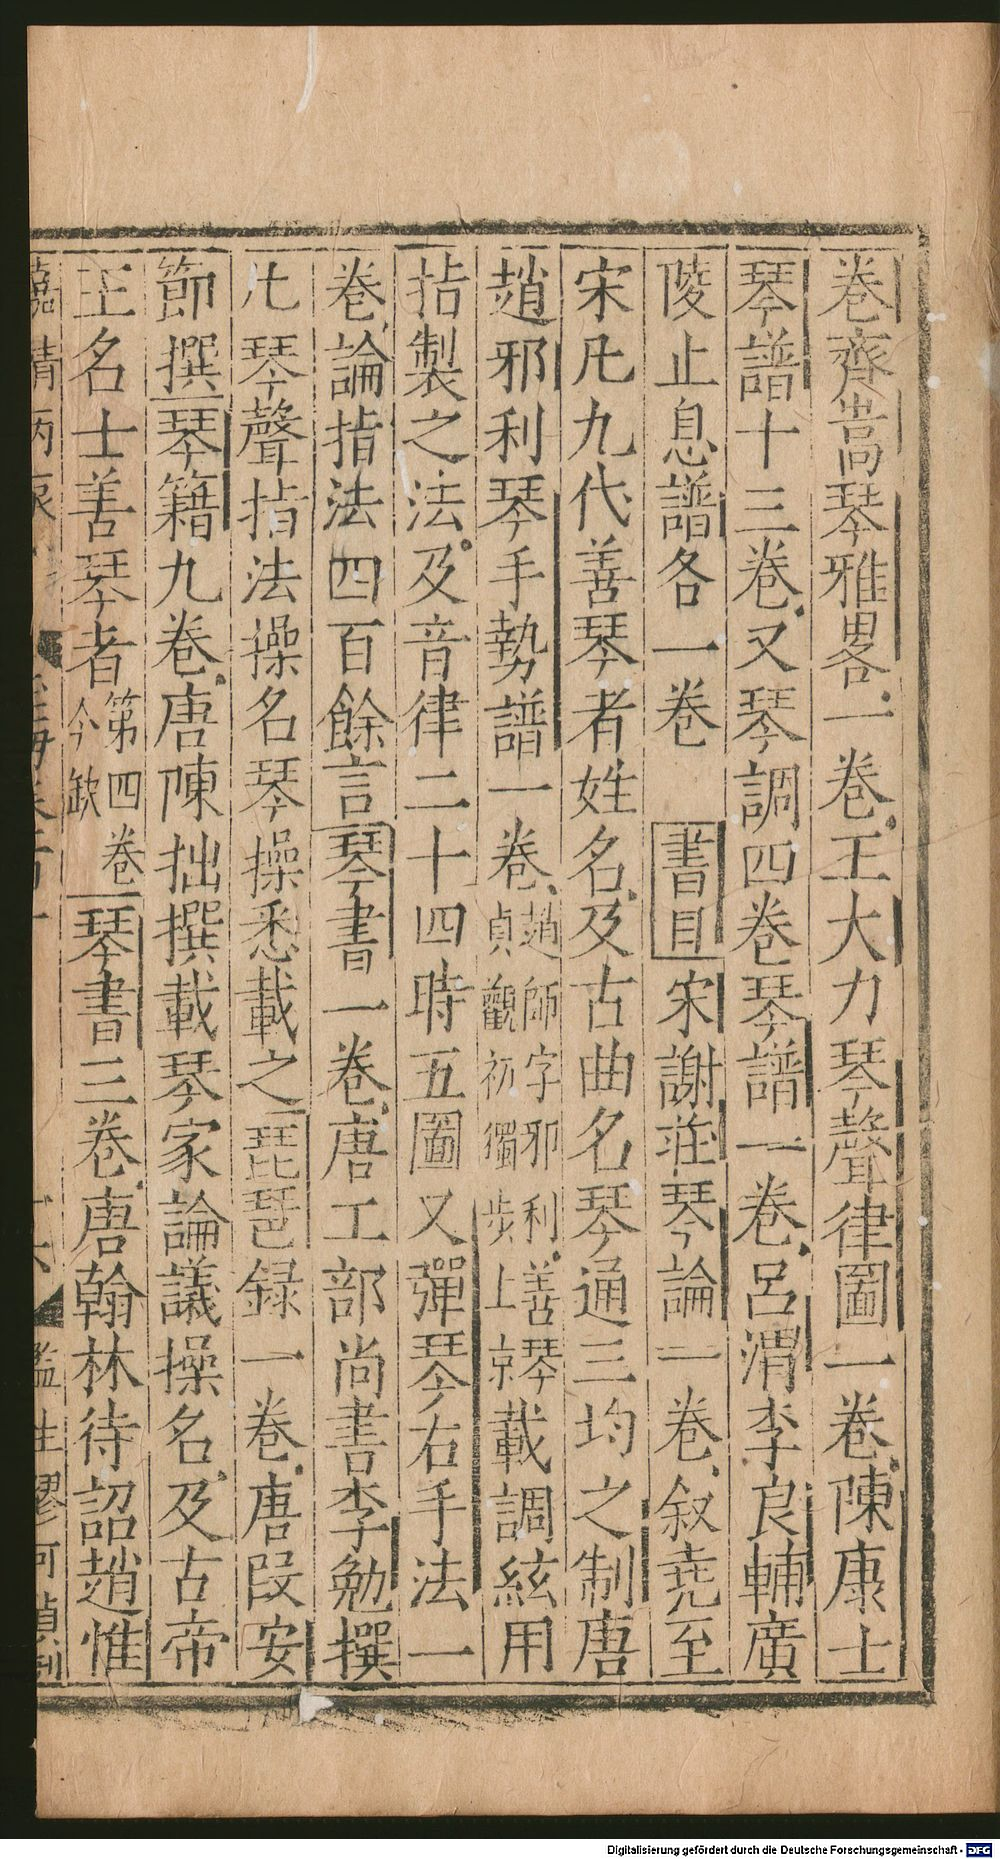 卷齊嵩琴雅畧一卷王大力琴聲律圖一卷陳康士
琴譜十三卷又琴調四卷琴譜一卷呂渭李良輔廣
陵止息譜各一卷 書目宋謝莊琴論一卷叙堯至
宋凡九代善琴者姓名及古曲名琴通三均之制唐
趙邪利琴手勢譜一卷趙師字邪利善琴貞觀初獨步上京載調絃用
指製之法及音律二十四時五圖又彈琴右手法一
卷論指法四百餘言琴書一卷唐工部尚書李勉撰
凡琴聲指法操名琴操悉載之琵琶録一卷唐段安
節撰琴籍九卷唐陳拙撰載琴家論議操名及古帝
王名士善琴者第四卷今缺琴書三卷唐翰林待詔趙惟
嘉靖丙 監生廖
Digitalisierung gefördert durch die Deutsche Forschungsgemeinschaft - DFG